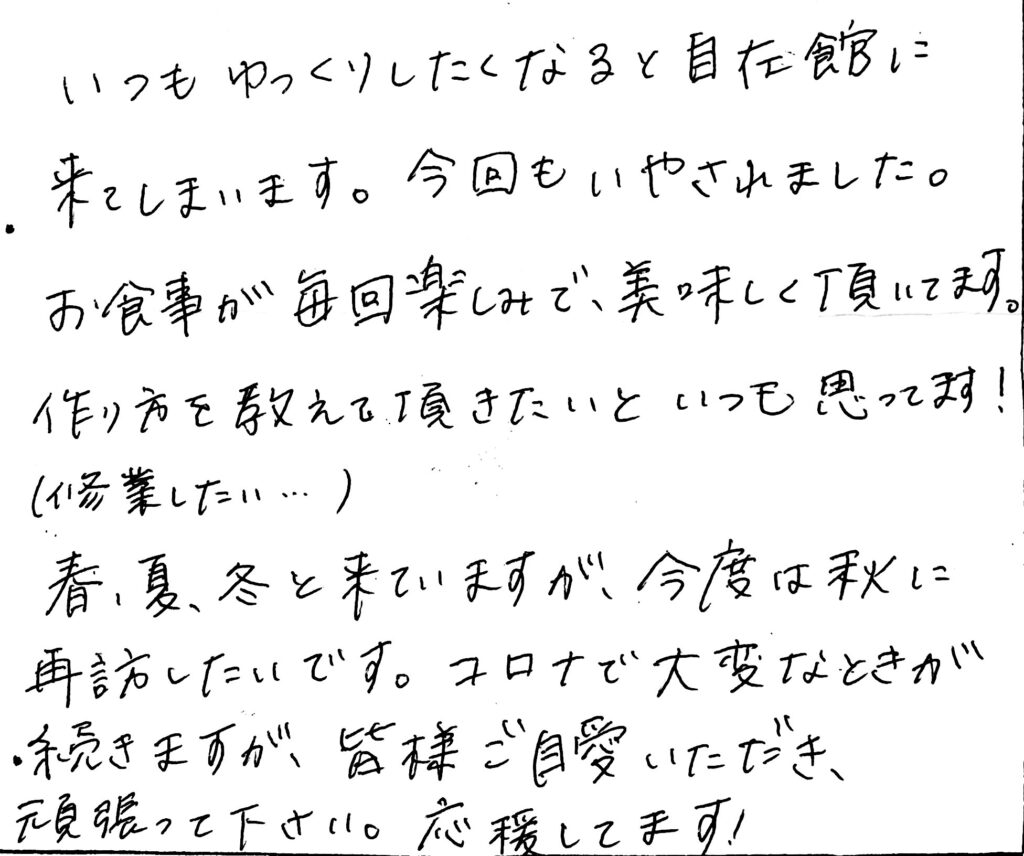 いつもゆっくりしたくなると自在館に
来てしまいます。今回もいやされました。
お食事が毎回楽しみで、美味しく頂いてます。
作り方を教えて頂きたいといつも思ってます！
(修業したい…)
春、夏、冬と来ていますが、今度は秋に
再訪したいです。コロナで大変なときが
続きますが、皆様ご自愛いただき、
頑張って下さい。応援してます！